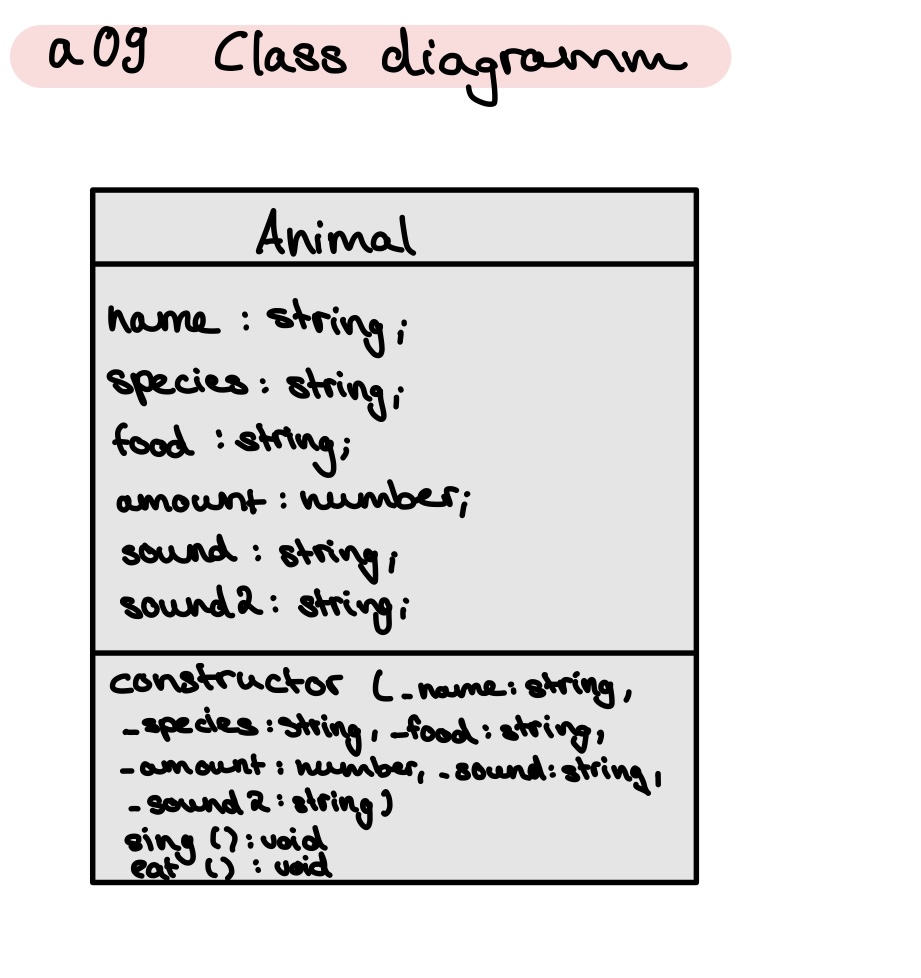 a09 Class diagramm
Animal
name : string;
species : string;
food : string;
amount : number;
sound : string;
sound2 : string;
constructor (_name: string,
_species: string, _food: string,
_amount: number, _sound: string,
_sound2: string)
sing (): void
eat () : void